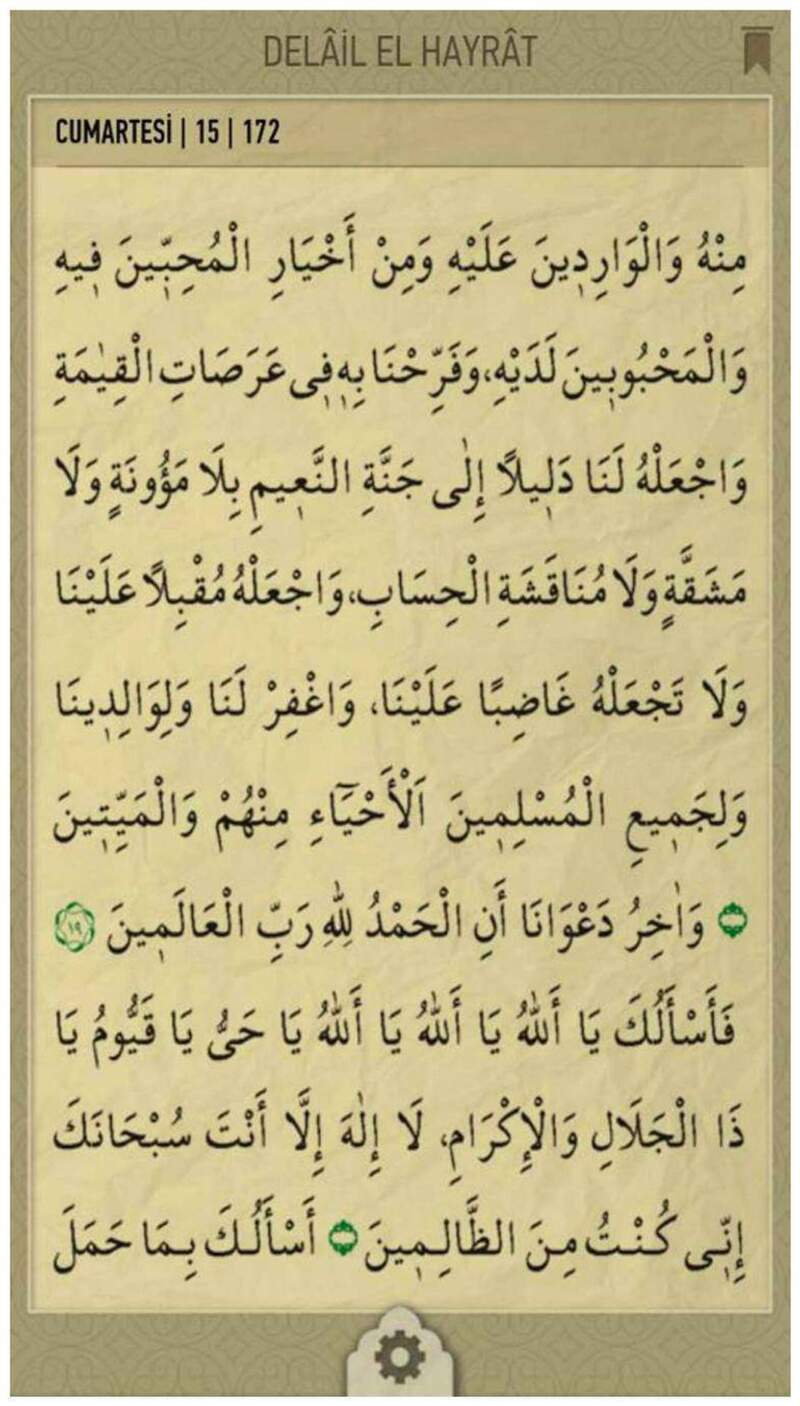 DELÂİL EL HAYRÂT
CUMARTESİ | 15 | 172
مِنْهُ وَالْوَارِدِينَ عَلَيْهِ وَمِنْ أَخْيَارِ الْمُحِبِّينَ فِيهِ
وَالْمَحْبُوبِينَ لَدَيْهِ، وَفَرِّحْنَا بِهِ فِى عَرَصَاتِ الْقِيٰمَةِ
وَاجْعَلْهُ لَنَا دَلِيلاً إِلٰى جَنَّةِ النَّعِيمِ بِلَا مَؤُونَةٍ وَلَا
مَشَقَّةٍ وَلَا مُنَاقَشَةِ الْحِسَابِ، وَاجْعَلْهُ مُقْبِلاً عَلَيْنَا
وَلَا تَجْعَلْهُ غَاضِبًا عَلَيْنَا، وَاغْفِرْ لَنَا وَلِوَالِدِينَا
وَلِجَمِيعِ الْمُسْلِمِينَ اَلْأَحْيَٓاءِ مِنْهُمْ وَالْمَيِّتِينَ
وَاٰخِرُ دَعْوَانَا أَنِ الْحَمْدُ لِلّٰهِ رَبِّ الْعَالَمِينَ ١٩
فَأَسْأَلُكَ يَا أَللّٰهُ يَا أَللّٰهُ يَا أَللّٰهُ يَا حَىُّ يَا قَيُّومُ يَا
ذَا الْجَلَالِ وَالْإِكْرَامِ، لَا إِلٰهَ إِلَّا أَنْتَ سُبْحَانَكَ
إِنِّى كُنْتُ مِنَ الظَّالِمِينَ أَسْأَلُكَ بِمَا حَمَلَ